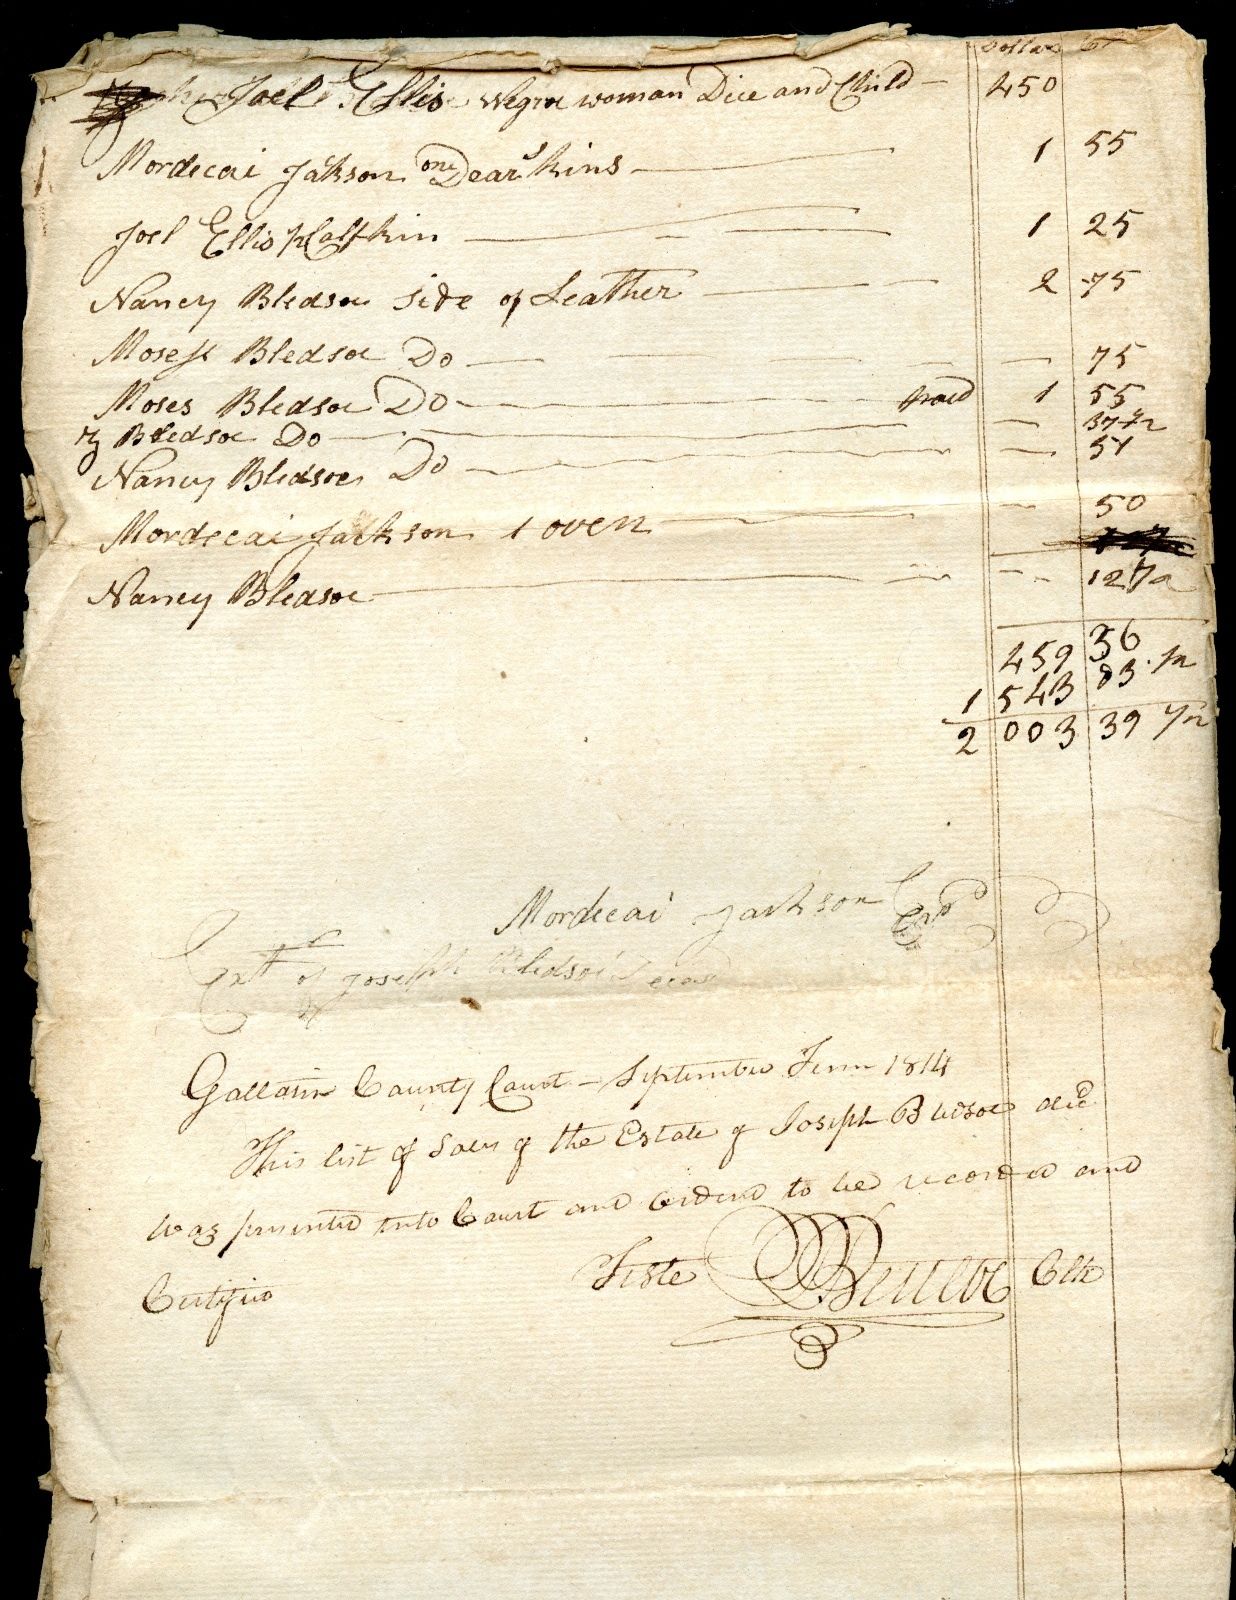 Dollars Cts
Joel Ellis Negroe woman Dice and Child — 450
Mordecai Jakson one Dear skins — 1 55
Joel Ellis 1 Calfskin — 1 25
Nancy Bledsoe side of Leather — 2 75
Moses Bledsoe Do — 75
Moses Bledsoe Do — paid 1 55
Bledsoe Do — 37 1/2
Nancy Bledsoe Do — 51
Mordecai Jackson 1 oven — 50
Nancy Bledsoe — 12 1/2
459 36
1 543 83 1/2
2 003 39 1/2
Mordecai Jackson Exr
Exr of Joseph Bledsoe Decd
Gallatin County Court – September Term 1814
This list of Sales of the Estate of Joseph Bledsoe decd
was presented into Court and Ordered to be recorded and
Certified
Teste Clk